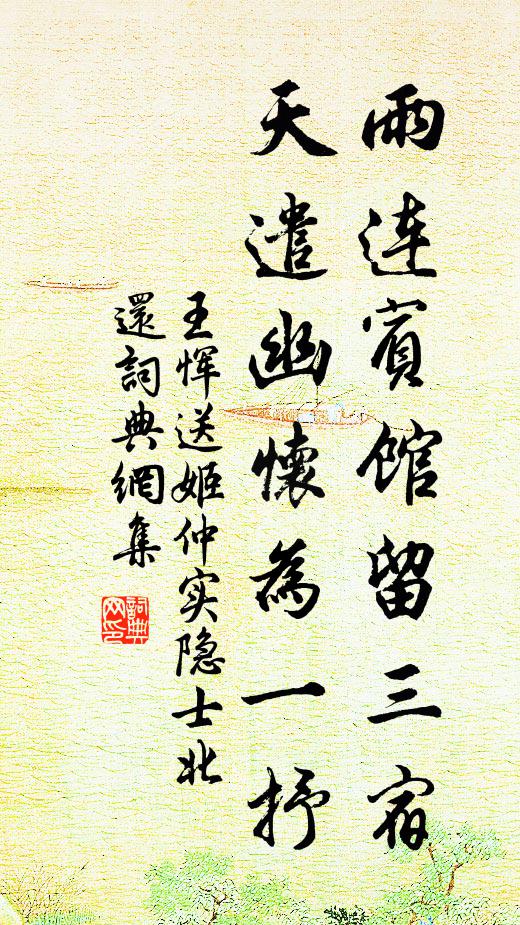 雨連賓館留三宿
天遣幽懷為一抒
王恽送姬仲实隐士北
還詞典網集
詞典
网印